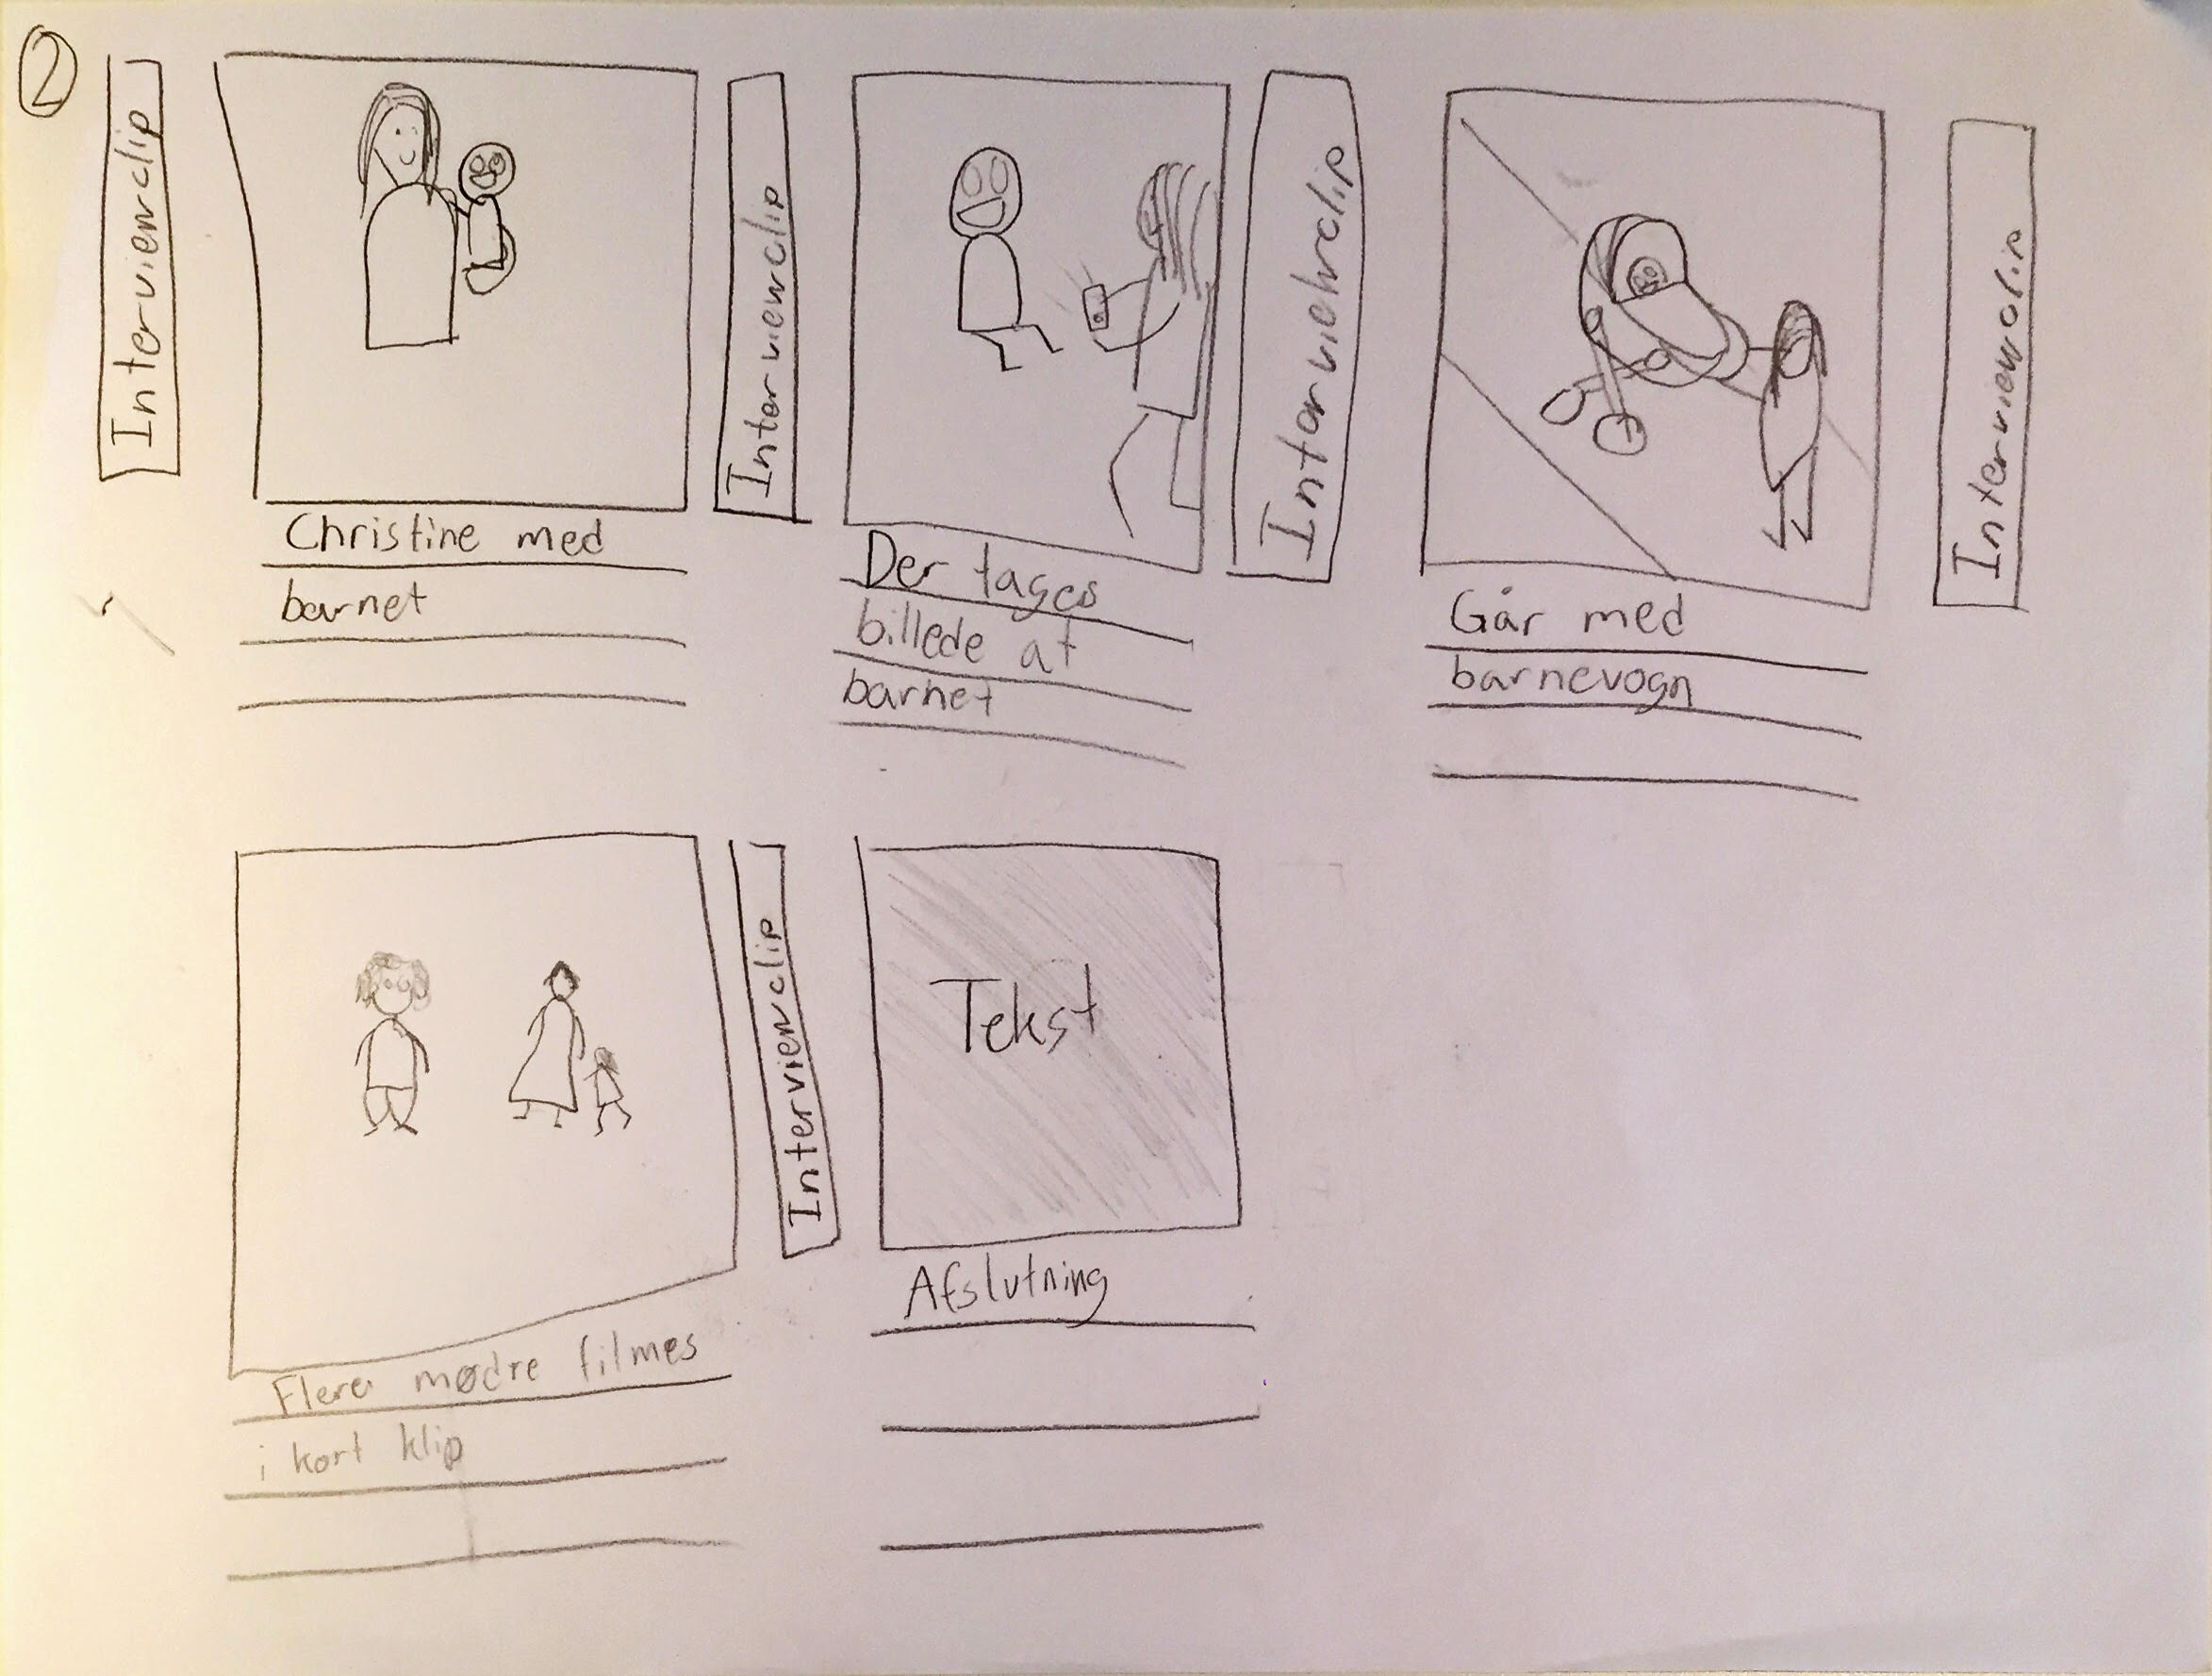 2
Interviewclip
Christine med
barnet
Interviewclip
Der tages
billede af
barnet
Interviehwclip
Går med
barnevogn
Interviewclip
Flere mødre filmes
i kort klip
Interviewclip
Tekst
Afslutning